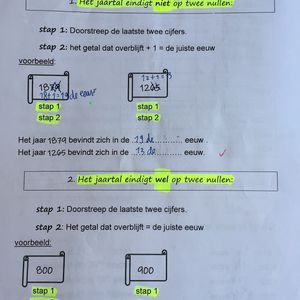 1. Het jaartal eindigt niet op twee nullen:
stap 1: Doorstreep de laatste twee cijfers.
stap 2: het getal dat overblijft + 1 = de juiste eeuw
voorbeeld:
12+1=13
1879 1245
18+1=19 de eeuw
stap 1 stap 1
stap 2 stap 2
Het jaar 1879 bevindt zich in de 19 de eeuw.
Het jaar 1245 bevindt zich in de 13 de eeuw.
2. Het jaartal eindigt wel op twee nullen:
stap 1: Doorstreep de laatste twee cijfers.
stap 2: Het getal dat overblijft = de juiste eeuw
voorbeeld:
800 900
stap 1 stap 1